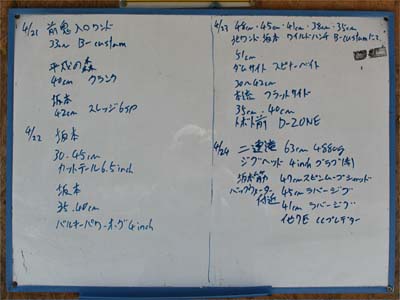 4/21 前鬼入口ワンド
33cm B-custom
平成の森
40cm クランク
坂本
42cm スレッジ6SP
4/22 坂本
30.45cm
カットテール6.5inch
坂本
35.40cm
バルキーパワーホグ4inch
4/23 48cm・45cm・41cm・38cm・35cm
北ワンド・坂本 ワイルドハンチ B-custom
51cm
ダムサイト スピナーベイト
30〜42cm
フラットサイド
35cm.40cm
トボト前 D-ZONE
4/24 二連滝 63cm 4880g
ジグヘッド 4inchグラブ
坂本筋 47cm スピンムーブシャッド
バックウォーター 45cm ラバージグ
付近 41cm ラバージグ
他9匹